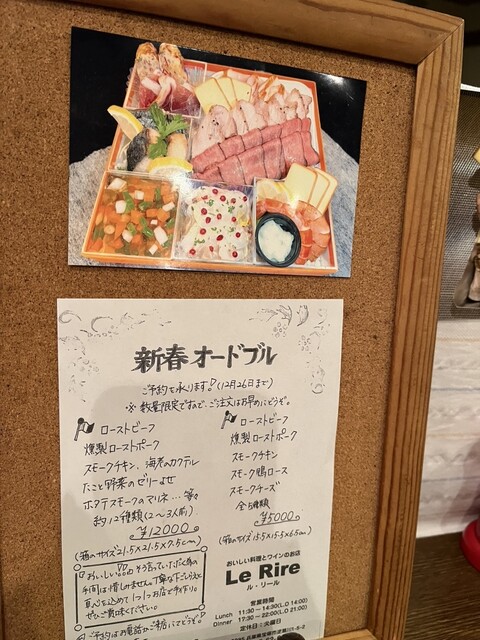 新春オードブル
ご予約を承ります!(12月26日まで)
※数量限定ですので、ご注文はお早めにどうぞ。
ローストビーフ
燻製ローストポーク
スモークチキン、海老のカクテル
たこと野菜のゼリーよせ
ホタテスモークのマリネ…等々
約12種類(2~3人前)
¥12000
(箱のサイズ21.5×21.5×7.5cm)
ローストビーフ
燻製ローストポーク
スモークチキン
スモーク鴨ロース
スモークチーズ
全5種類
¥5000
(箱のサイズ15.5×15.5×6.5cm)
「おいしい」そう言っていただく為の
手間は惜しみません。丁寧な下ごしらえと
真心を込めて1つ1つお店で手作り。
ぜひご賞味ください。
ご予約はお電話かご来店にてどうぞ。
おいしい料理とワインのお店
Le Rire
ル・リール
営業時間
Lunch 11:30~14:30(L.O 14:00)
Dinner 17:30~22:00(L.O 21:00)
定休日:火曜日